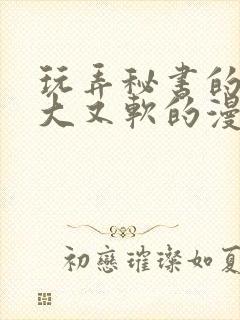 玩弄秘书的
大又軟的漫
初戀璀璨如夏